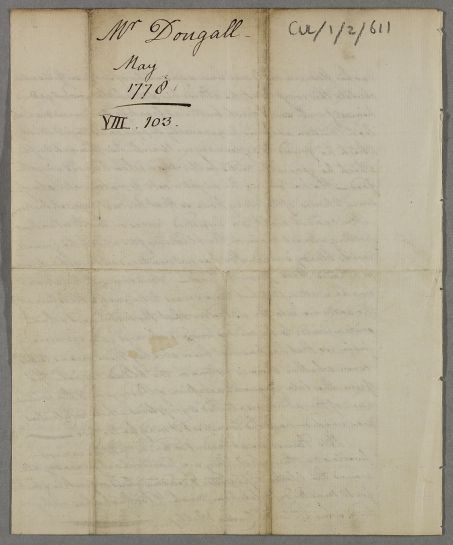 Mr Dougall
May
1778
VIII. 103.
Cul/1/2/611